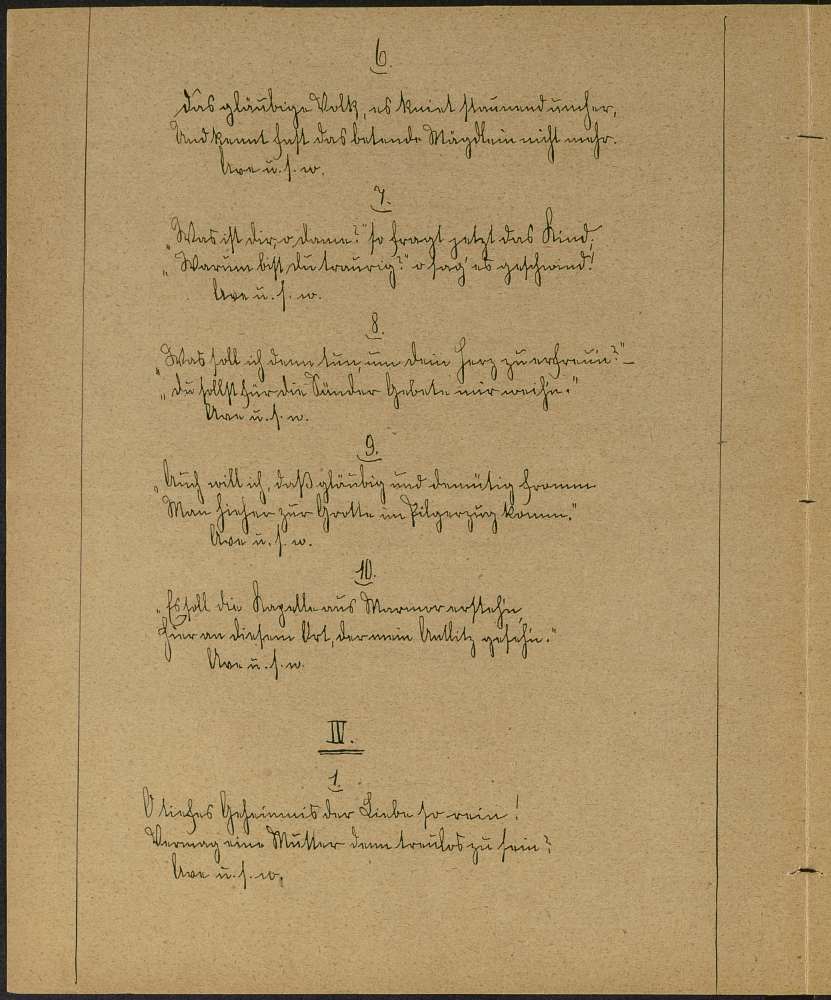 6.
Das gläubige Volk, es kniet staunend umher,
Und kennt fast das betende Mägdlein nicht mehr.
Ave u. s. w.
7.
„Was ist dir, o Dame?" so fragt jetzt das Kind;
„Warum bist du traurig?" o sag' es geschwind!
Ave u. s. w.
8.
„Was soll ich denn tun, um dein Herz zu erfreu'n?"–
„Du sollst für die Sünder Gebete mir weih'n."
Ave u. s. w.
9.
„Auch will ich, daß gläubig und demütig fromm
Man hieher zur Grotte im Pilgerzug komm."
Ave u. s. w.
10.
„Es soll die Kapelle aus Marmor ersteh'n,
Hier an diesem Ort, der mein Antlitz geseh'n."
Ave u. s. w.
IV.
1.
O tiefes Geheimnis der Liebe so rein!
Vermag eine Mutter denn treulos zu sein?
Ave u. s. w.